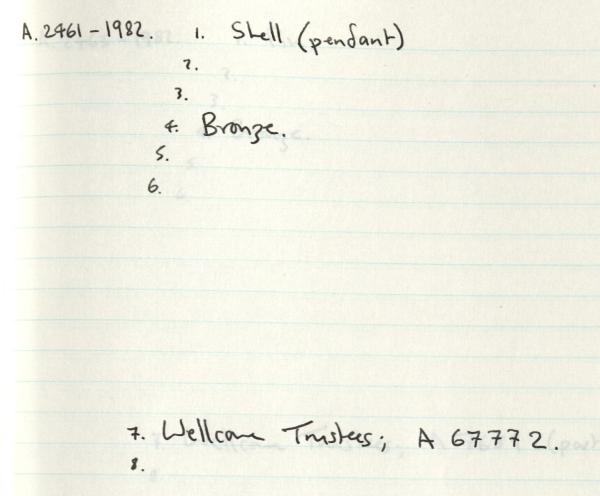 A.2461-1982. 1. Shell (pendant)
2.
3.
4. Bronze.
5.
6.
7. Wellcome Trustees; A 67772.
8.